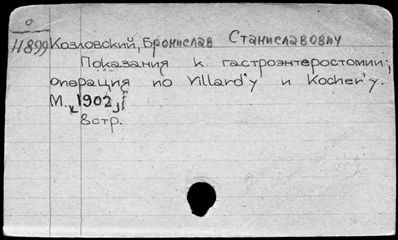 0
11899 Козловский, Бронислав Станиславович
Показания к гастроэнтеростомии;
операция по Villard'у и Kocher'у.
М., 1902,
8 стр.